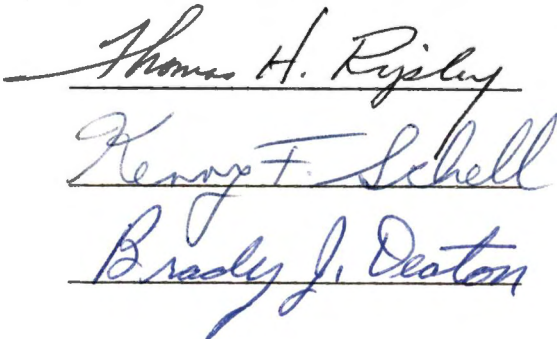 Thomas H. Ripley
Kenny F. Schell
Brady J. Deaton